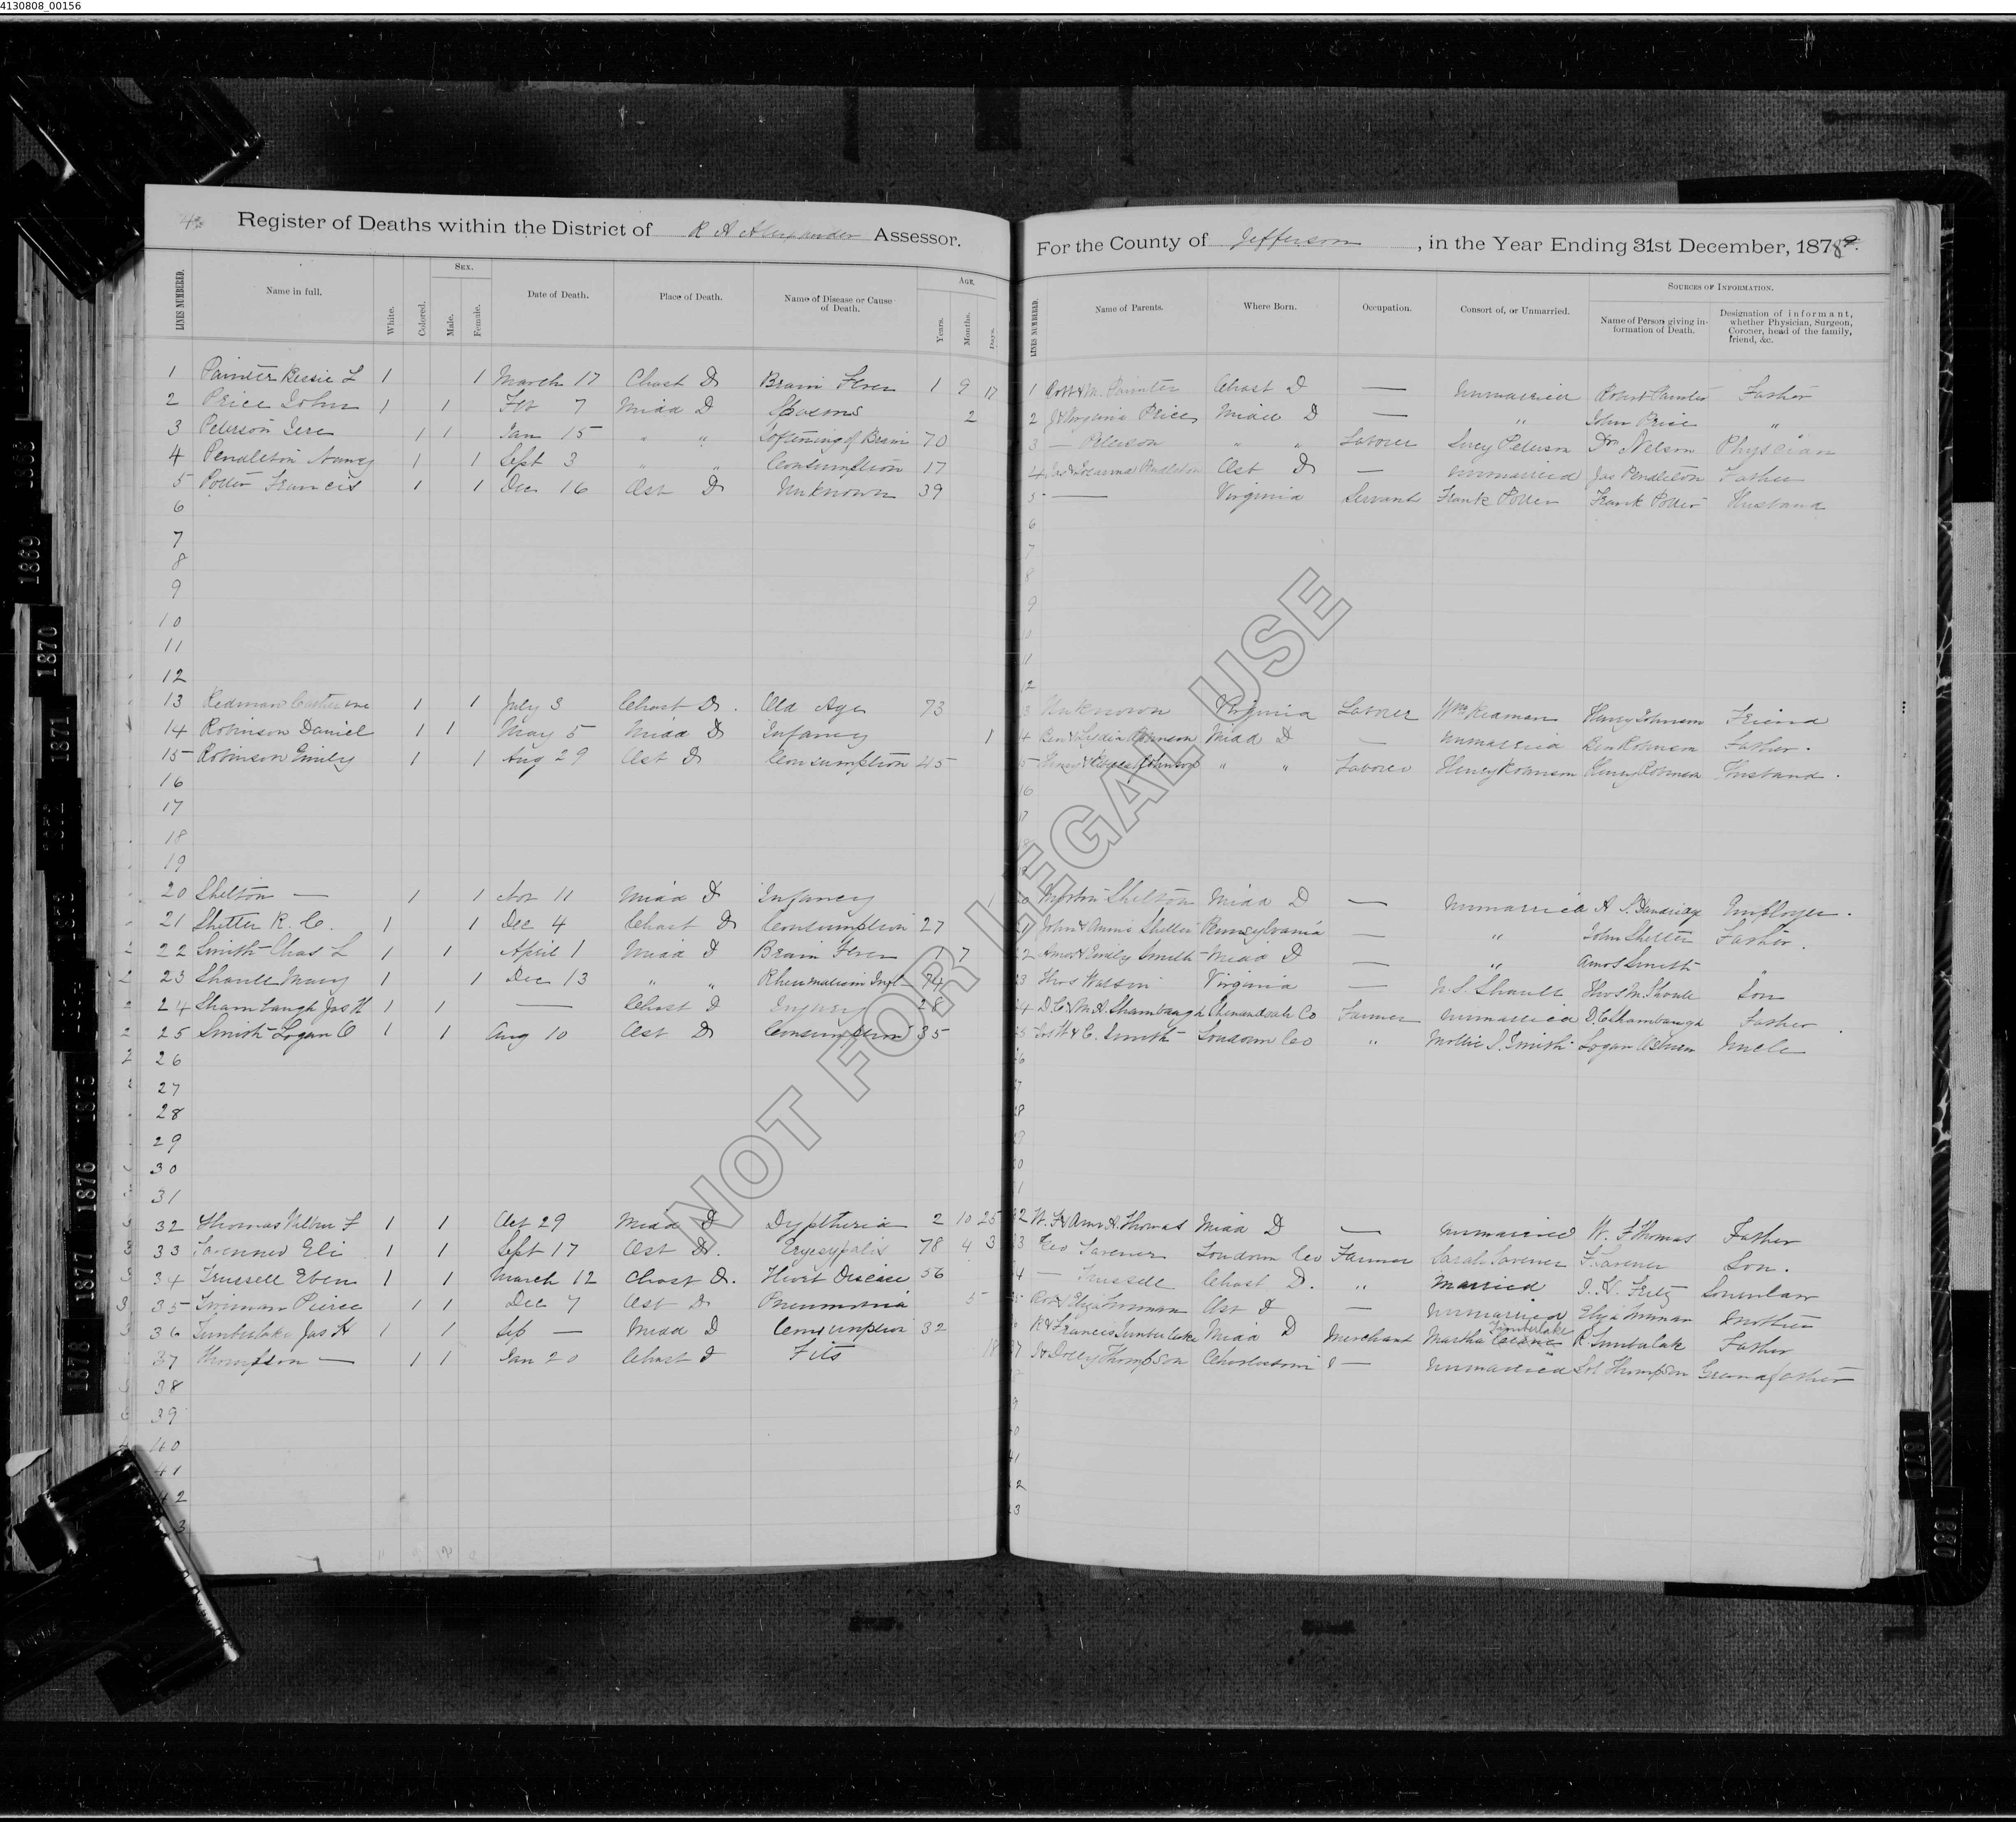 4130808_00156
Register of Deaths within the District of R A Alexander Assessor.
LINES NUMBERED.
Name in full.
White.
Colored.
SEX.
Male.
Female.
Date of Death.
Place of Death.
Name of Disease or Cause of Death.
AGE.
Years.
Months.
Days.
1 Painter Bessie L 1 1 March 17 Chast D Brain Fever 1 9 17
2 Price John 1 1 Feb 7 Midd D Spasms 2
3 Peterson Jere 1 1 Jan 15 " " Softening of Brain 70
4 Pendleton Nancy 1 1 Sept 3 " " Consumption 17
5 Potter Francis 1 1 Dec 16 Ost D Unknown 39
6
7
8
9
10
11
12
13 Redman Catherine 1 1 July 3 Chast D. Old Age 73
14 Robinson Daniel 1 1 May 5 Midd D Infancy 1
15 Robinson Emily 1 1 Aug 29 Ost D Consumption 45
16
17
18
19
20 Shelton — 1 1 Nov 11 Midd D Infancy 1
21 Shetter R. C. 1 1 Dec 4 Chast D Consumption 27
22 Smith Chas L 1 1 April 1 Midd D Brain Fever 1 7
23 Shaull Mary 1 1 Dec 13 " " Rheumatism Inf 74
24 Shambaugh Jos H 1 1 — Chast D Injury 28
25 Smith Logan O 1 1 Aug 10 Ost D Consumption 35
26
27
28
29
30
31
32 Thomas Wilbur F 1 1 Oct 29 Midd D Dyptheria 2 10 25
33 Tavenner Eli 1 1 Sept 17 Ost D. Erycypalis 78 4 3
34 Trussell Eben 1 1 March 12 Chast D. Heart Disease 56
35 Pierce 1 1 Dec 7 Ost D Pneumonia 5
36 Timberlake Jas H 1 1 Sep — Midd D Consumption 32
37 Thompson — 1 1 Jan 20 Chast D Fits 18
38
39
40
41
42
3
For the County of Jefferson, in the Year Ending 31st December, 1878
LINES NUMBERED.
Name of Parents.
Where Born.
Occupation.
Consort of, or Unmarried.
SOURCES OF INFORMATION.
Name of Person giving information of Death.
Designation of informant, whether Physician, Surgeon, Coroner, head of the family, friend, &c.
1 Robt & M. Painter Chast D — Unmarried Robert Painter Father
2 J & Virginia Price Midd D — " John Price "
3 — Peterson " " Laborer Lucy Peterson Dr Nelson Physician
4 Jas & Pendleton Ost D — Unmarried Jas Pendleton Father
5 — Virginia Servant Frank Potter Frank Potter Husband
6
7
8
9
10
11
12
3 Unknown Virginia Laborer Wm Redman Henry Johnson Friend
4 Ben & Lydia Robinson Midd D — Unmarried Ben Robinson Father.
5 Henry & Johnson " " Laborer Henry Robinson Henry Robinson Husband.
16
17
18
20 Shelton Midd D — Unmarried A S. Dandridge Employer.
21 John & Annie Shetter Pennsylvania — " John Shetter Father.
22 Amos & Emily Smith Midd D — " Amos Smith "
23 Thos Watson Virginia — N. S. Shaull Thos M. Shaull Son
24 D. C & M. A. Shambaugh Shenandoah Co Farmer Unmarried D. C Shambaugh Father.
25 & C. Smith Loudoun Co " Mollie S. Smith Logan Osburn Uncle
26
27
28
29
30
31
32 W. F & Ann A. Thomas Midd D — Unmarried W. F Thomas Father
33 Geo Tavener Loudoun Co Farmer Sarah Tavener F. Tavener Son.
4 — Trussell Chast D. " Married J. H. Fritz Soninlaw
5 Rob & Eliza Ost D — Unmarried Eliza Mother
R & Francis Timberlake Midd D Merchant Martha Timberlake R Timberlake Father
37 J & Dolly Thompson Charlestown D — Unmarried Sol Thompson Grandfather
9
40
41
42
3
1868
1869
1870
1871
1872
1873
1874
1875
1876
1877
1878
1879
1880
NOT FOR LEGAL USE